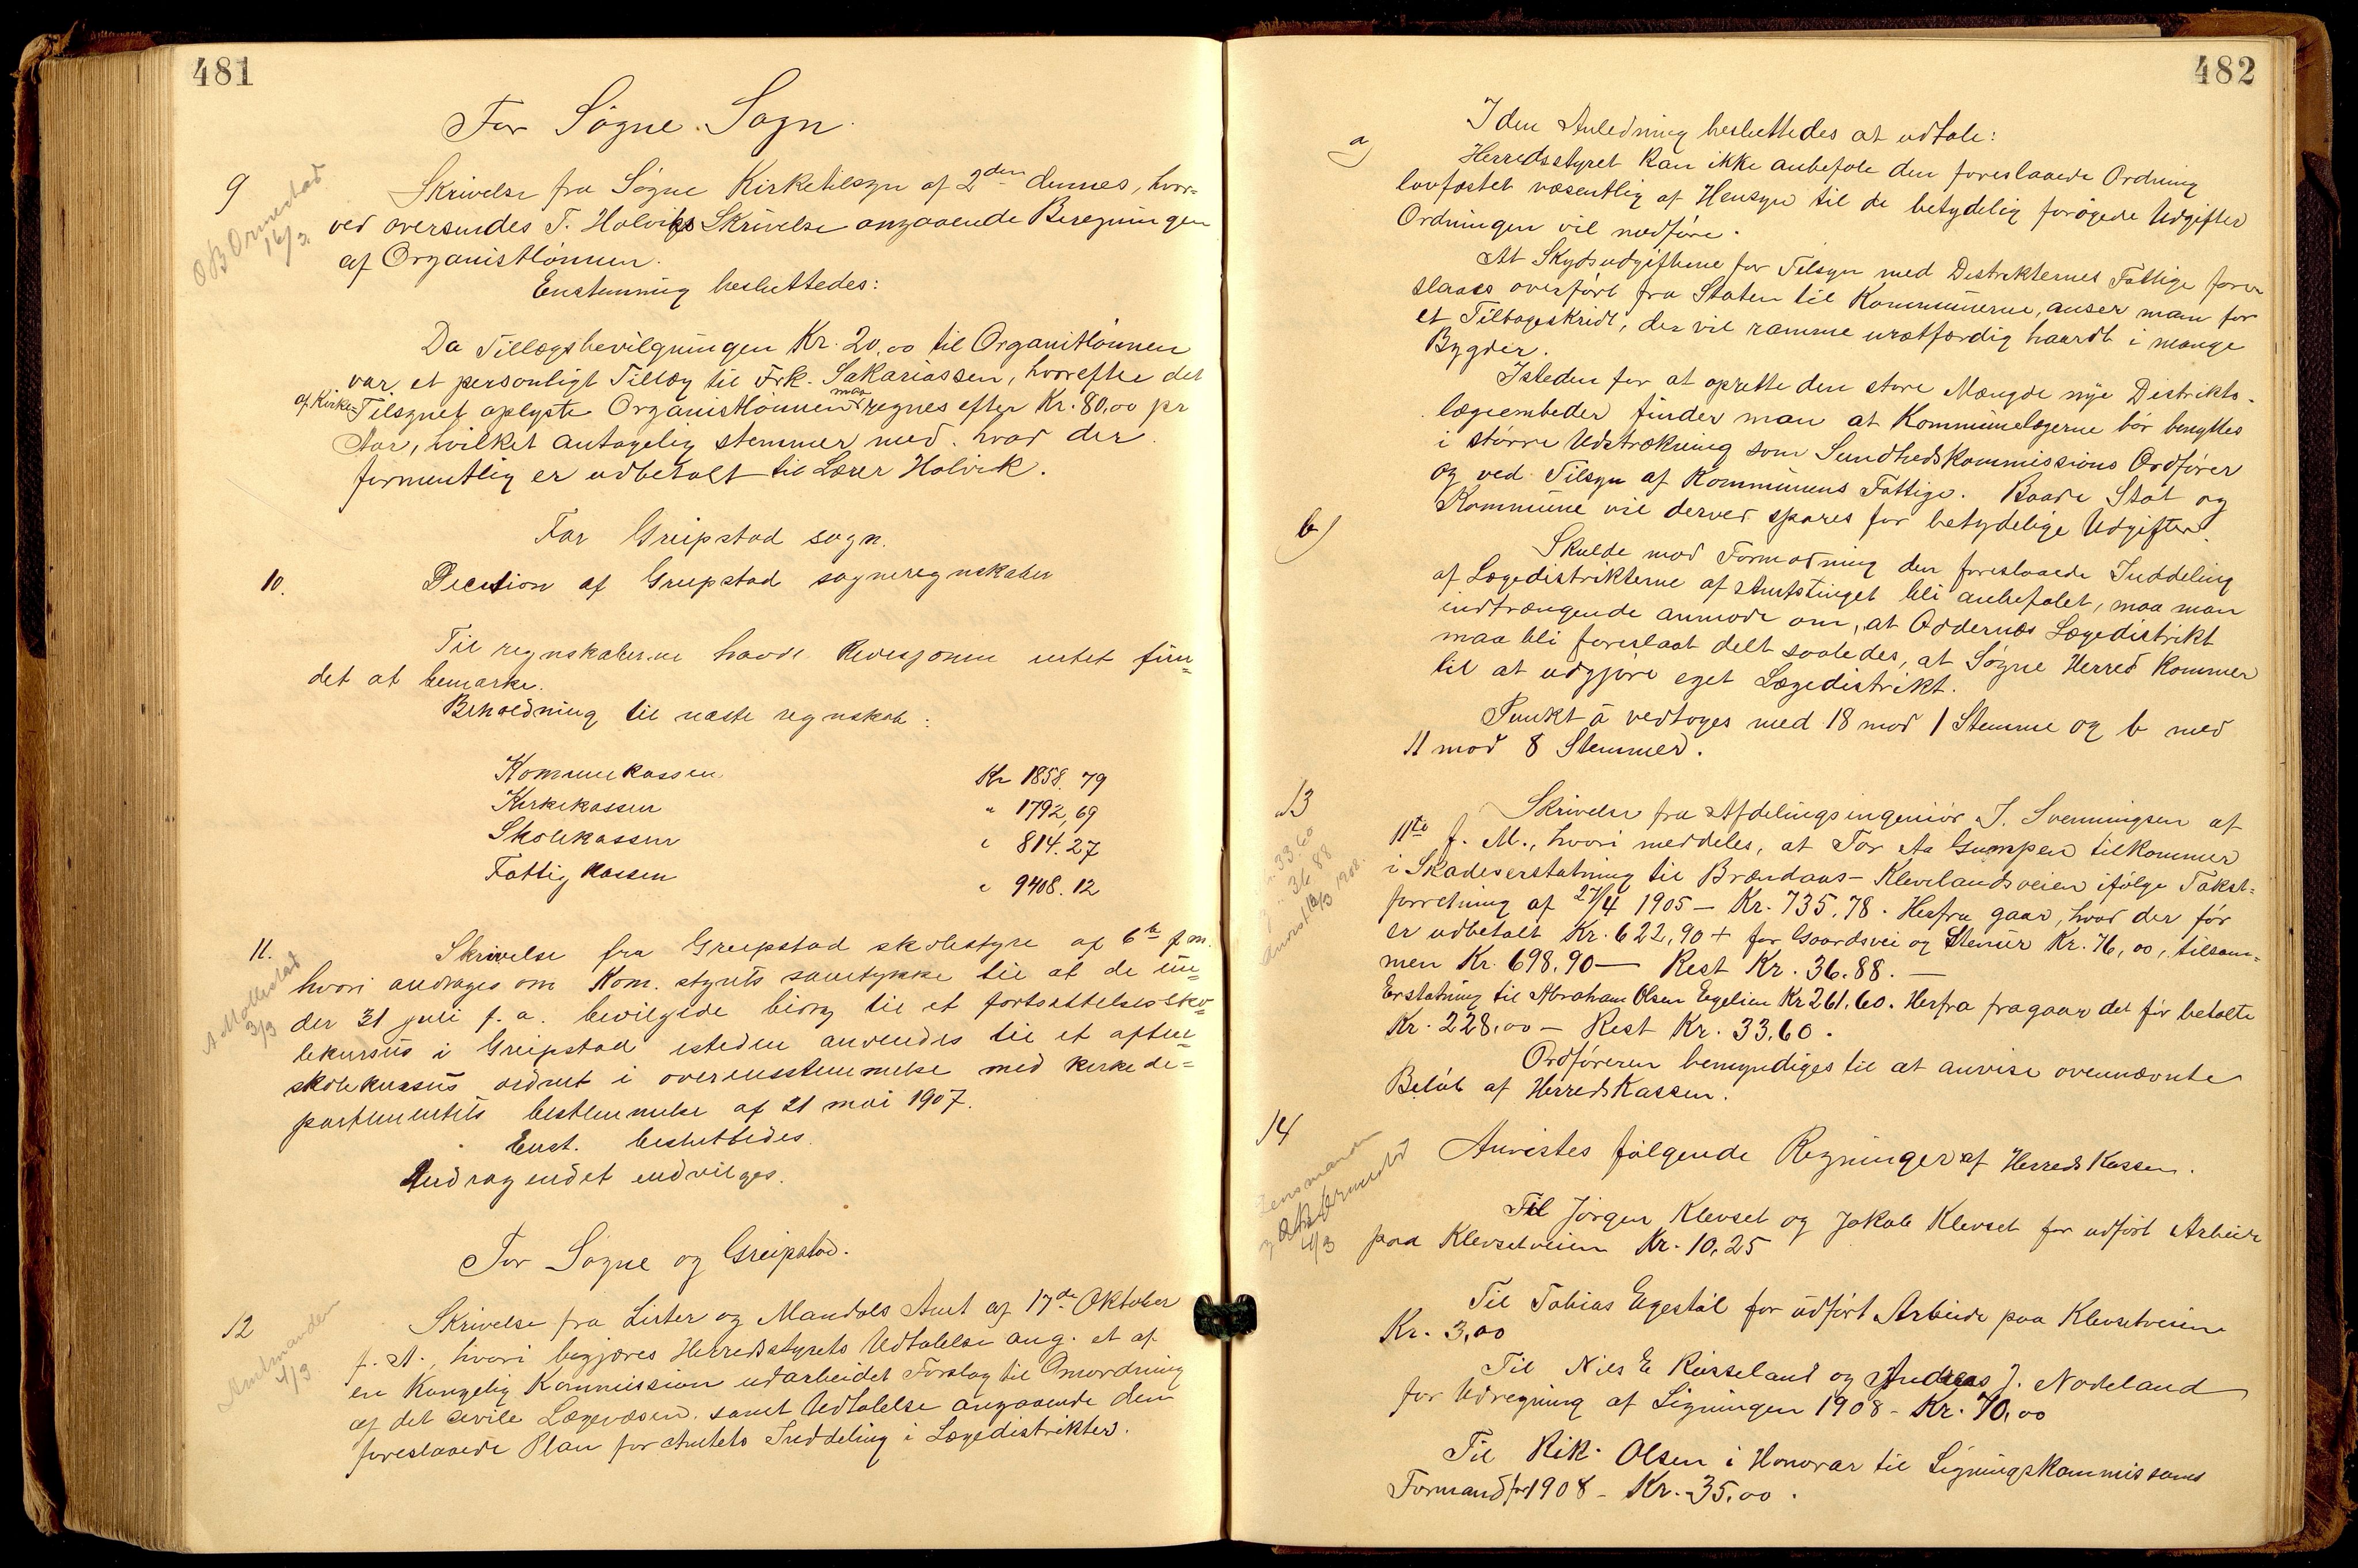 481
For Søgne Sogn.
9
OB Ormestad
16/3
Skrivelse fra Søgne Kirketilsyn af 2den dennes, hvor=
ved oversendes T. Holviks Skrivelse angaaende Beregningen
af Organistlønnen.
Enstemmig besluttedes:
Da Tillægsbevilgningen Kr. 20,00 til Organistlønnen
var et personligt Tillæg til Frk. Sakariassen, hvorefter det
af Kirke=Tilsynet oplyste Organistlønnen maa regnes efter Kr. 80,00 pr
Aar, hvilket antagelig stemmer med hvad der
formentlig er udbetalt til Lærer Holvik.
For Greipstad sogn.
10.
Decision af Greipstad sogneregnskaber
Til regnskaberne havde Revisjonen intet fun=
det at bemærke.
Beholdning til næste regnskab:
Kommunekassen Kr 1858.79
Kirkekassen " 1792,69
Skolekassen " 814.27
Fattigkassen " 9408.12
11.
A Møllestad
3/3
Skrivelse fra Greipstad skolestyre af 6te f.m.
hvori andrages om Kom. styrets samtykke til at de un=
der 31 juli f.a. bevilgede bidrag til et fortsættelsessko=
lekursus i Greipstad isteden anvendes til et aften=
skolekursus ordnet i overensstemmelse med kirkede=
partementets bestemmelse af 21 mai 1907.
Enst. besluttedes.
Andragendet indvilges.
For Søgne og Greipstad.
12
Amtmanden
4/3
Skrivelse fra Lister og Mandals Amt af 17de Oktober
f. A., hvori begjæres Herredsstyrets Udtalelse ang. et af
en Kongelig Kommission udarbeidet Forslag til Omordning
af det civile Lægevæsen, samt Udtalelse angaaende den
foreslaaede Plan for Amtets Inddeling i Lægedistrikter.
482
I den Anledning besluttedes at udtale:
a)
Herredsstyret kan ikke anbefale den foreslaaede Ordning
lovfæstet væsentlig af Hensyn til de betydelig forøgede Udgifter
Ordningen vil medføre.
At Skydsudgifterne for Tilsyn med Distrikternes Fattige fore=
slaaes overført fra Staten til Kommunerne, anser man for
et Tilbageskridt, der vil ramme uretfærdig haardt i mange
Bygder.
Isteden for at oprette den store Mængde nye Distrikts=
lægeembeder finder man at Kommunelægerne bør benyttes
i større Udstrækning som Sundhedskommissions Ordfører
og ved Tilsyn af Kommunens Fattige. Baade Stat og
Kommune vil derved spares for betydelige Udgifter.
b)
Skulde mod Formodning den foreslaaede Inddeling
af Lægedistrikterne af Amtstinget bli anbefalet, maa man
indtrængende anmode om, at Oddernæs Lægedistrikt
maa bli foreslaat delt saaledes, at Søgne Herred kommer
til at udgjøre eget Lægedistrikt.
Punkt a vedtoges med 18 mod 1 Stemme og b med
11 mod 8 Stemmer.
13
33.60
36.88
Anvist 16/3 1908.
Skrivelse fra Afdelingsingeniør J. Svenningsen af
11te f. M., hvori meddeles, at Tor Aa Gumpen tilkommer
i Skadeserstatning til Brændaas-Klevelandsveien ifølge Takst=
forretning af 27/4 1905 — Kr. 735,78. Herfra gaar, hvad der før
er udbetalt Kr. 622,90 + for Gaardsvei og Stenur Kr. 76,00, tilsam=
men Kr. 698,90 — Rest Kr. 36.88. —
Erstatning til Abraham Olsen Egelien Kr 261,60. Herfra fragaar det før betalte
Kr. 228,00 — Rest Kr. 33,60.
Ordføreren bemyndiges til at anvise ovennævnte
Beløb af Herredskassen.
14
Lensmanden
OB Ormestad
4/3
Anvistes følgende Regninger af Herredskassen.
Til Jørgen Klevset og Jakob Klevset for udført Arbeide
paa Klevsetveien Kr. 10,25
Til Tobias Egestøl for udført Arbeide paa Klevsetveien
Kr. 3,00
Til Nils E Risseland og Andreas J. Nodeland
for Udregning af Ligningen 1908 – Kr. 70,00
Til Rik. Olsen i Honorar til Ligningskommissions
Formand for 1908 – Kr. 35,00.